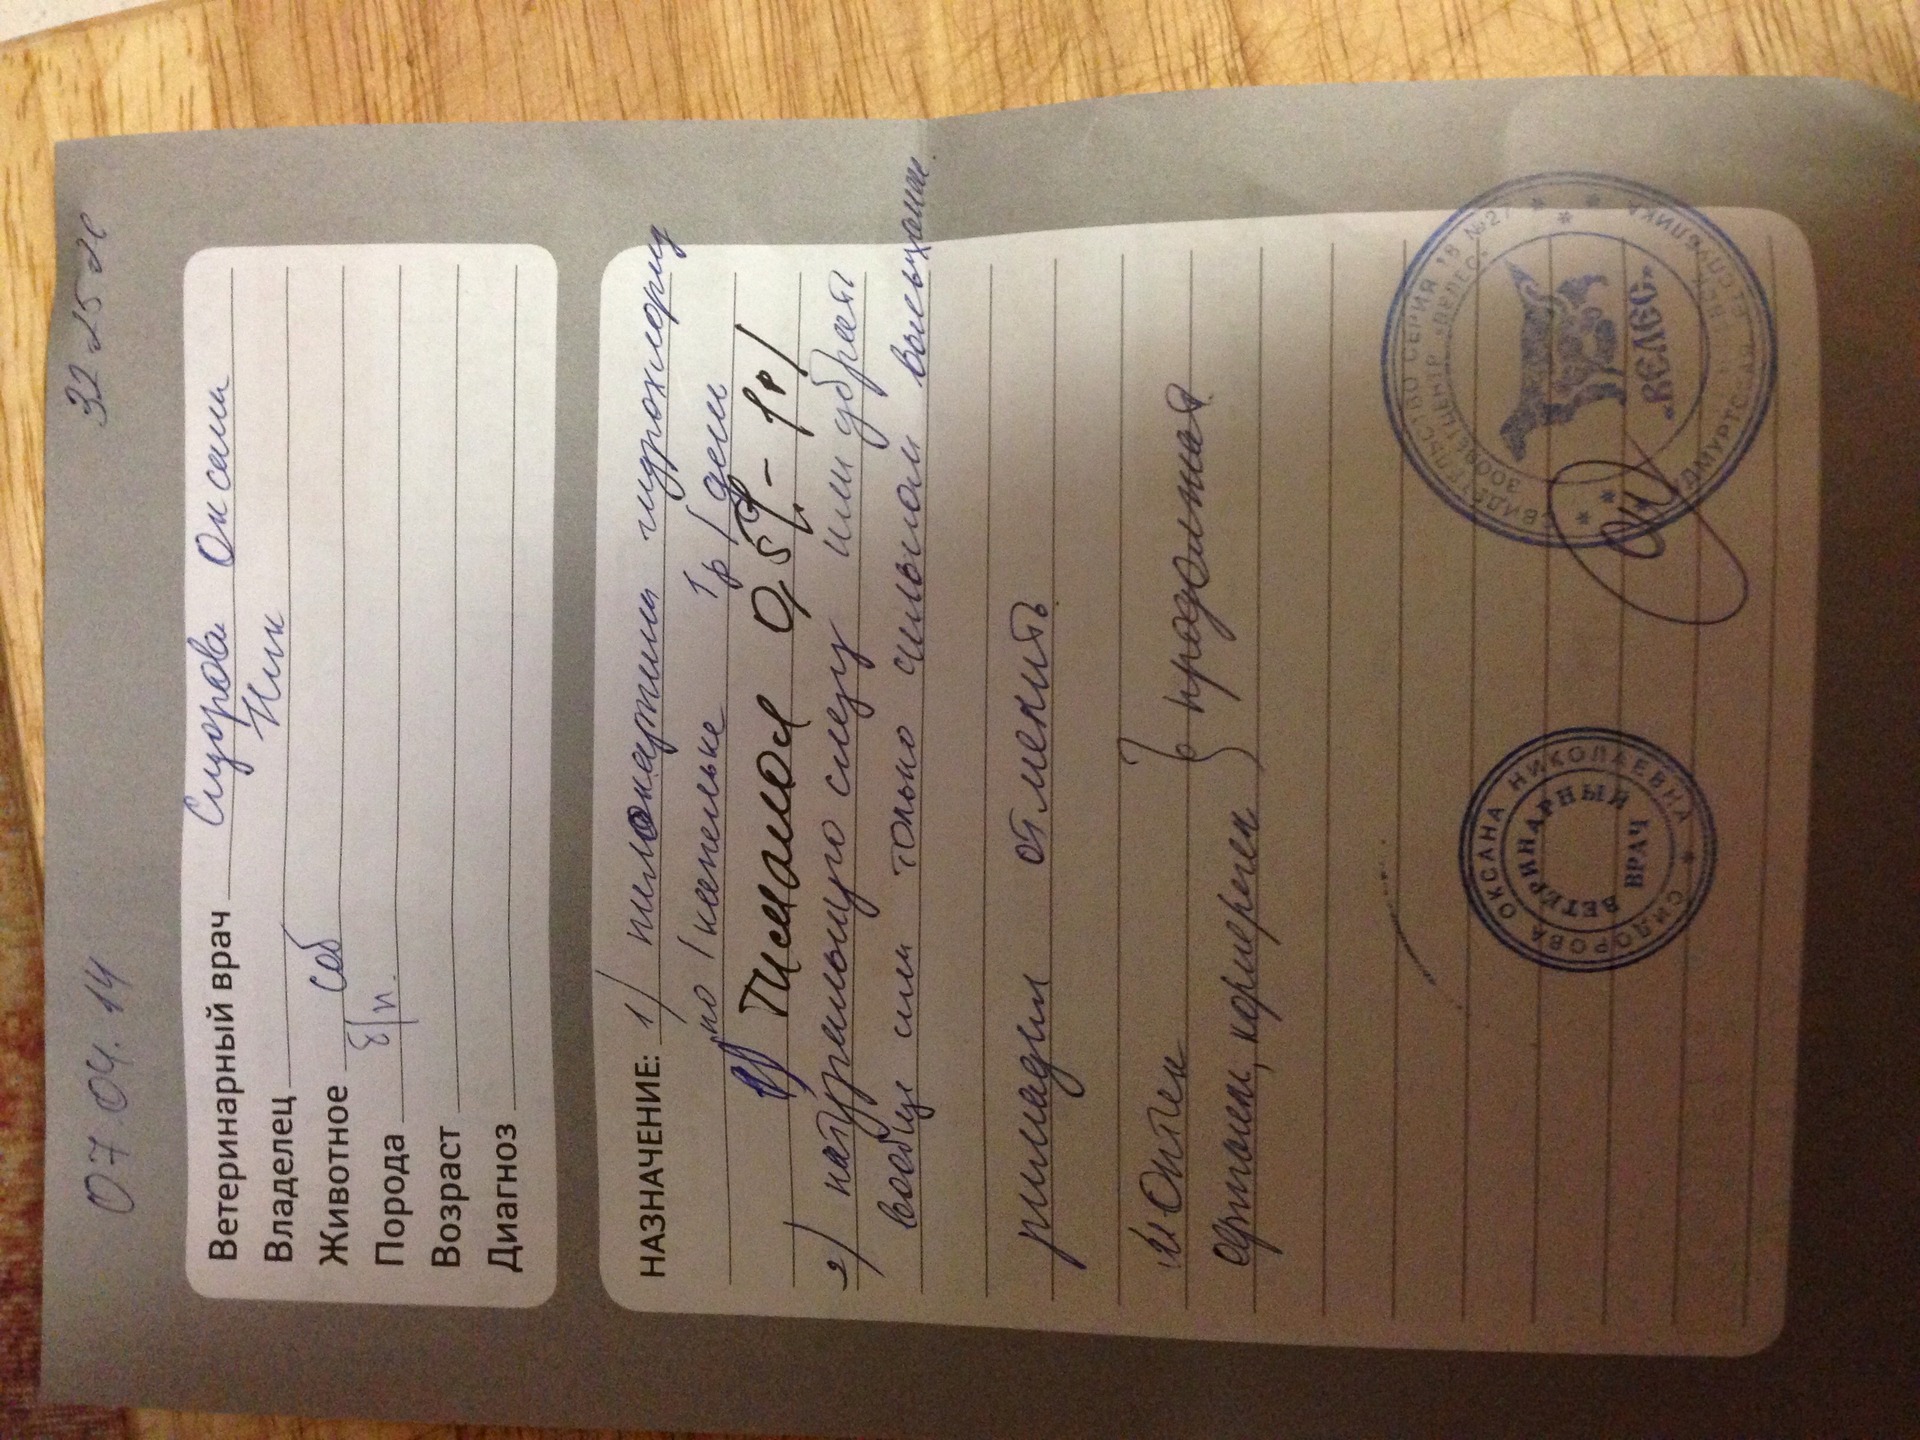 07.04.14 32 25 21
Ветеринарный врач Сидорова Оксана
Владелец Ник
Животное соб
Порода б/п.
Возраст
Диагноз
НАЗНАЧЕНИЕ: 1/ пилокарпин гидрохлорид
по 1 капельке 1р/день
Тималол 0,5% - 1р/
2/ натуральную слезу или убрать
вообще или только сильном
римадил отменить
продолжая
СВИДЕТЕЛЬСТВО СЕРИЯ 18 №27
ЗООВЕТЦЕНТР «ВЕЛЕС»
УДМУРТСКАЯ РЕСПУБЛИКА
«ВЕЛЕС»
СИДОРОВА ОКСАНА НИКОЛАЕВНА
ВЕТЕРИНАРНЫЙ
ВРАЧ